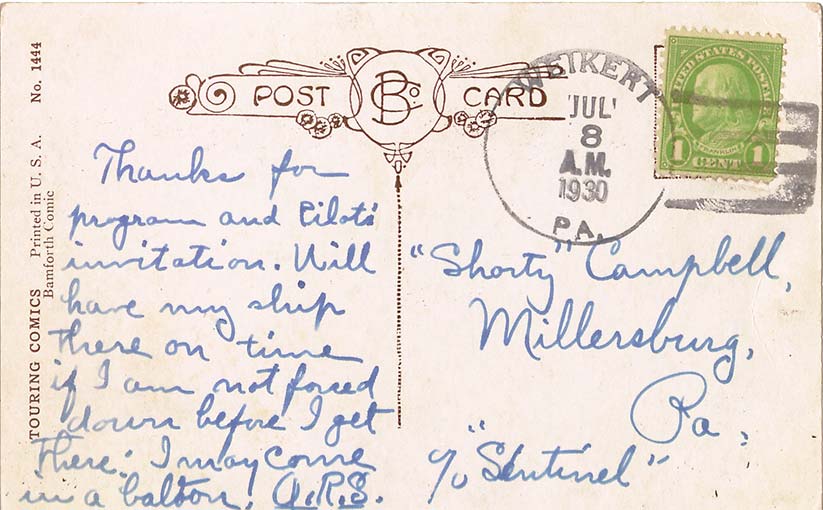 TOURING COMICS Printed in U. S. A. No. 1444
Bamforth Comic
POST CARD
B Co.
WEIKERT
JUL
8
A.M.
1930
PA.
UNITED STATES POSTAGE
FRANKLIN
1 CENT 1
Thanks for
program and Pilots
invitation. Will
have my ship
there on time
if I am not forced
down before I get
there. I may come
in a baloon. A.R.S.
"Shorty" Campbell,
Millersburg,
Pa.
c/o "Sentinel"